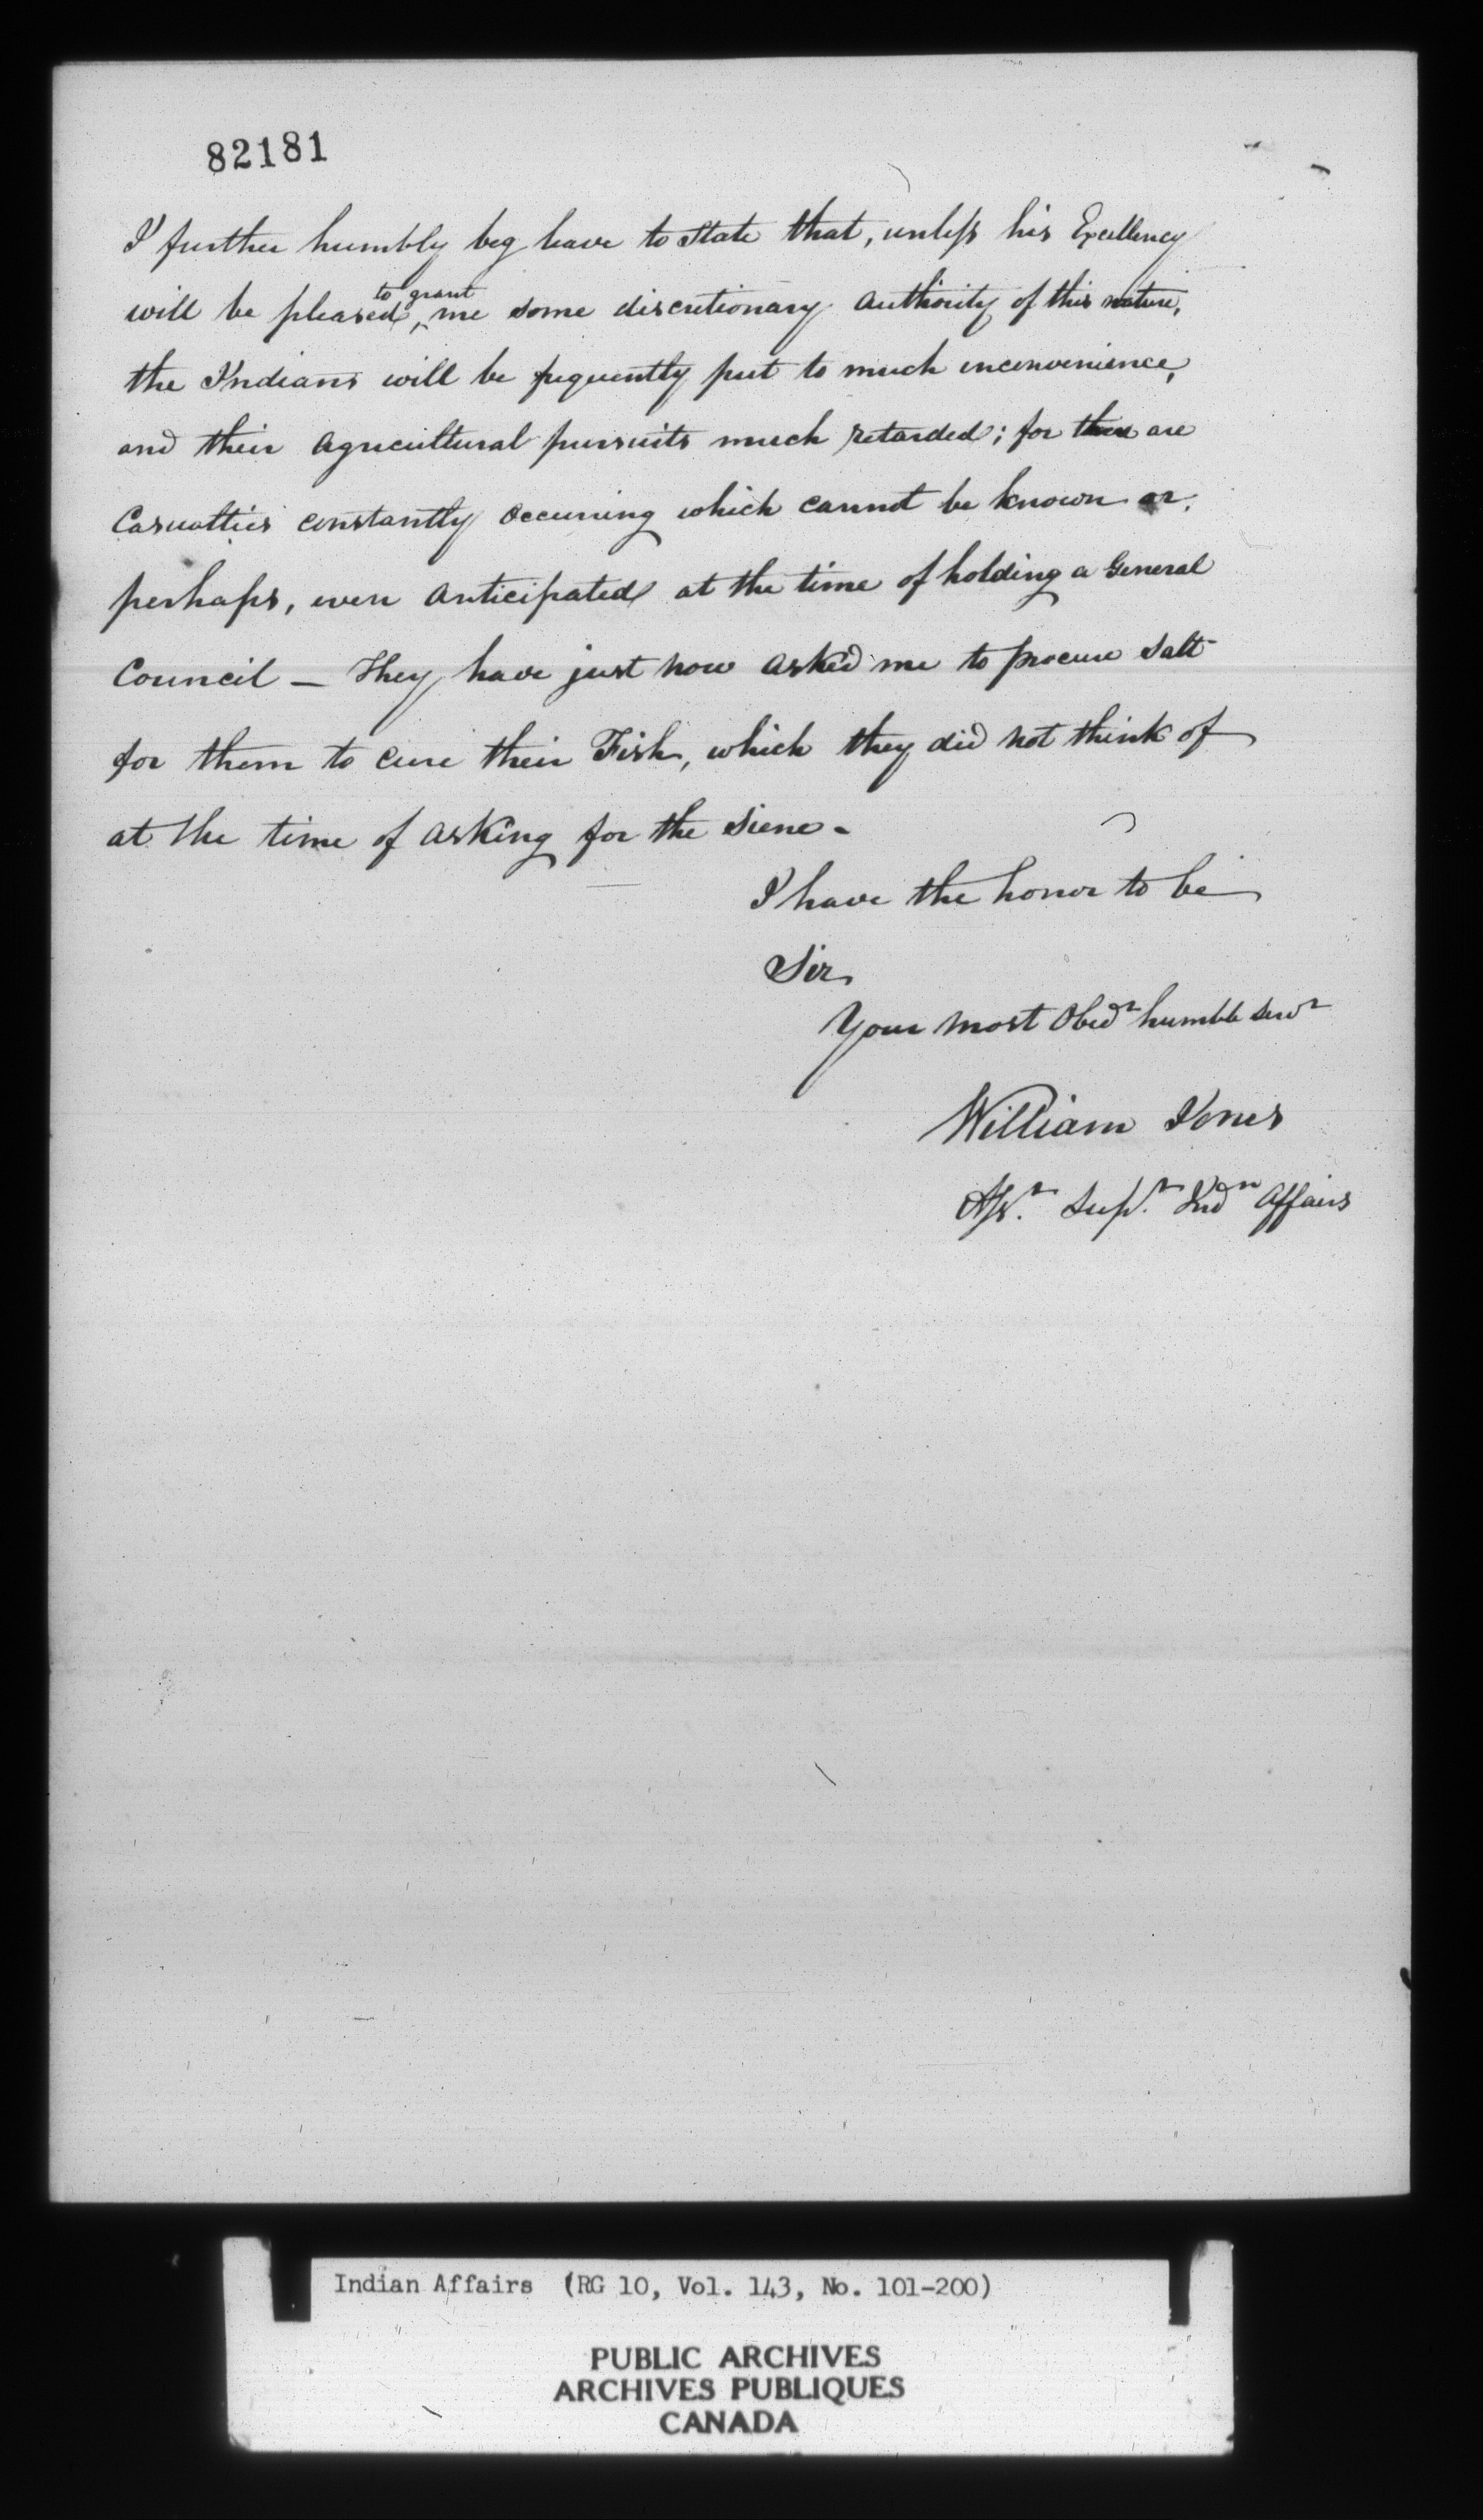 82181
I further humbly beg leave to State that, unless his Excellency
will be pleased, to grant me some discretionary authority of this nature,
the Indians will be frequently put to much inconvenience,
and their agricultural pursuits much retarded; for there are
Casualties constantly occuring which cannot be known or,
perhaps, even anticipated at the time of holding a General
Council — They have just now asked me to procure Salt
for them to cure their Fish, which they did not think of
at the time of asking for the Siene -
I have the honor to be
Sir
Your most Obedt humble Servt
William Jones
Asst. Supt. Indn Affairs
Indian Affairs (RG 10, Vol. 143, No. 101-200)
PUBLIC ARCHIVES
ARCHIVES PUBLIQUES
CANADA